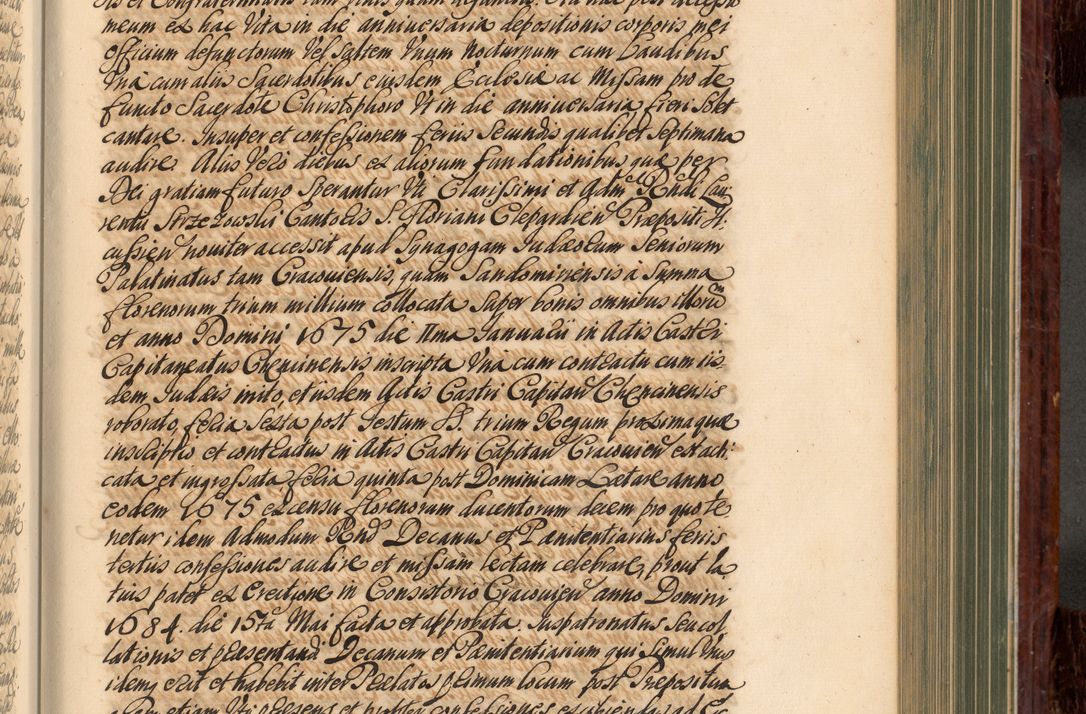 meum ex hac Vita in die anniversaria depositionis corporis mei
officium defunctorum Vel saltem Vnum Nocturnum cum Laudibus
Vna cum aliis Sacerdotibus eiusdem Ecclesiæ ac Missam pro de
functo Sacerdote Christophoro Vt in die anniversaria fieri solet
cantare. Insuper et confessionem feriis Secundis qualibet Septimana
audire. Aliis Vero diebus ex aliorum fundationibus quæ per
Dei gratiam futuro Sperantur Vti Clarissimi et Adm Rndi Lau
rentii Strzezowski Cantoris S. Floriani Clepardien Præpositi
cussien noviter accessit apud Synagogam Iudæorum Seniorum
Palatinatus tam Cracoviensis, quam Sandomiriensis à Summa
florenorum trium millium collocata Super bonis omnibus illorum
et anno Domini 1675 die IIma Ianuarii in Actis Castri
Capitaneatus Chencinensis inscripta Vna cum contractu cum iis
dem Iudæis inito, et iisdem Actis Castri Capitan Chencinensis
roborato, feria sexta post Festum SS. trium Regum proxima quæ
inscriptio et contractus in Actis Castri Capitan Cracovien est acti
cata et ingrossata feria quinta post Dominicam Lætare anno
eodem 1675 ex censu florenorum ducentorum decem pro quo te
netur idem Admodum Rnd Decanus et Pænitentiarius feriis
tertiis confessiones audire et missam lectam celebrare, prout la
tius patet ex Erectione in Consistorio Cracovien anno Domini
1684. die 15ta Mai facta et approbata. Iuspatronatus seu col
lationis et præsentandi Decanum et Pænitentiarium qui simul Vnus
idemq erit et habebit inter Prælatos primum locum post Præpositum